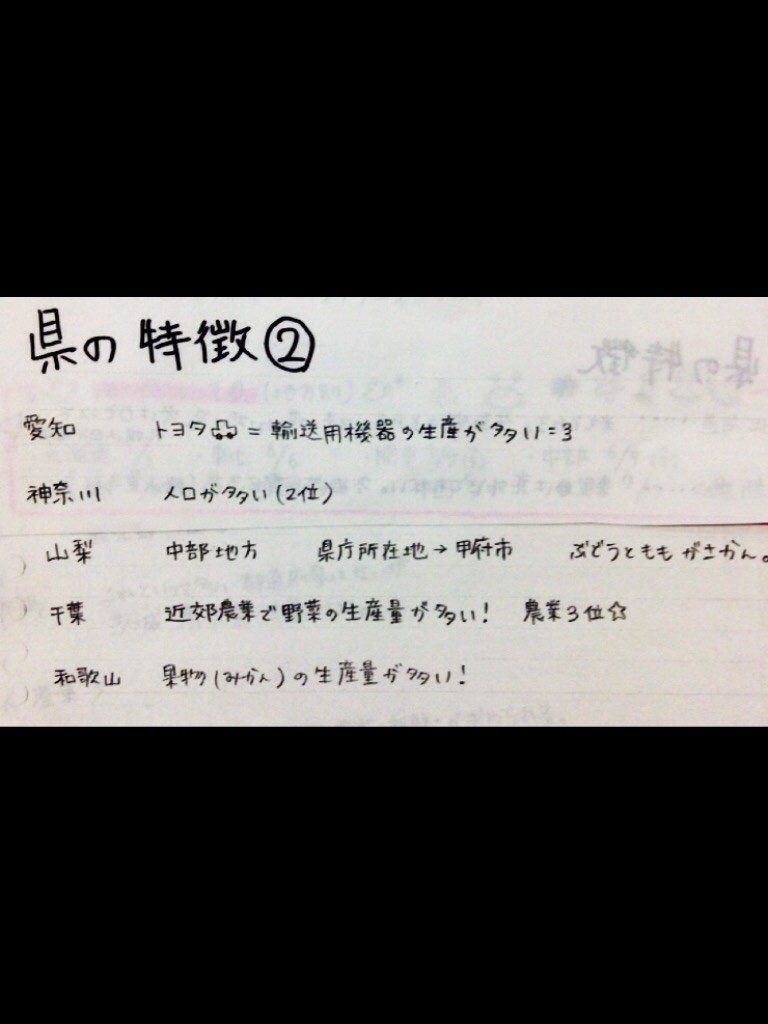 県の特徴②
愛知 トヨタ = 輸送用機器の生産が多い=3
神奈川 人口が多い(2位)
山梨 中部地方 県庁所在地→甲府市 ぶどうとももがさかん。
千葉 近郊農業で野菜の生産量が多い! 農業3位☆
和歌山 果物(みかん)の生産量が多い!